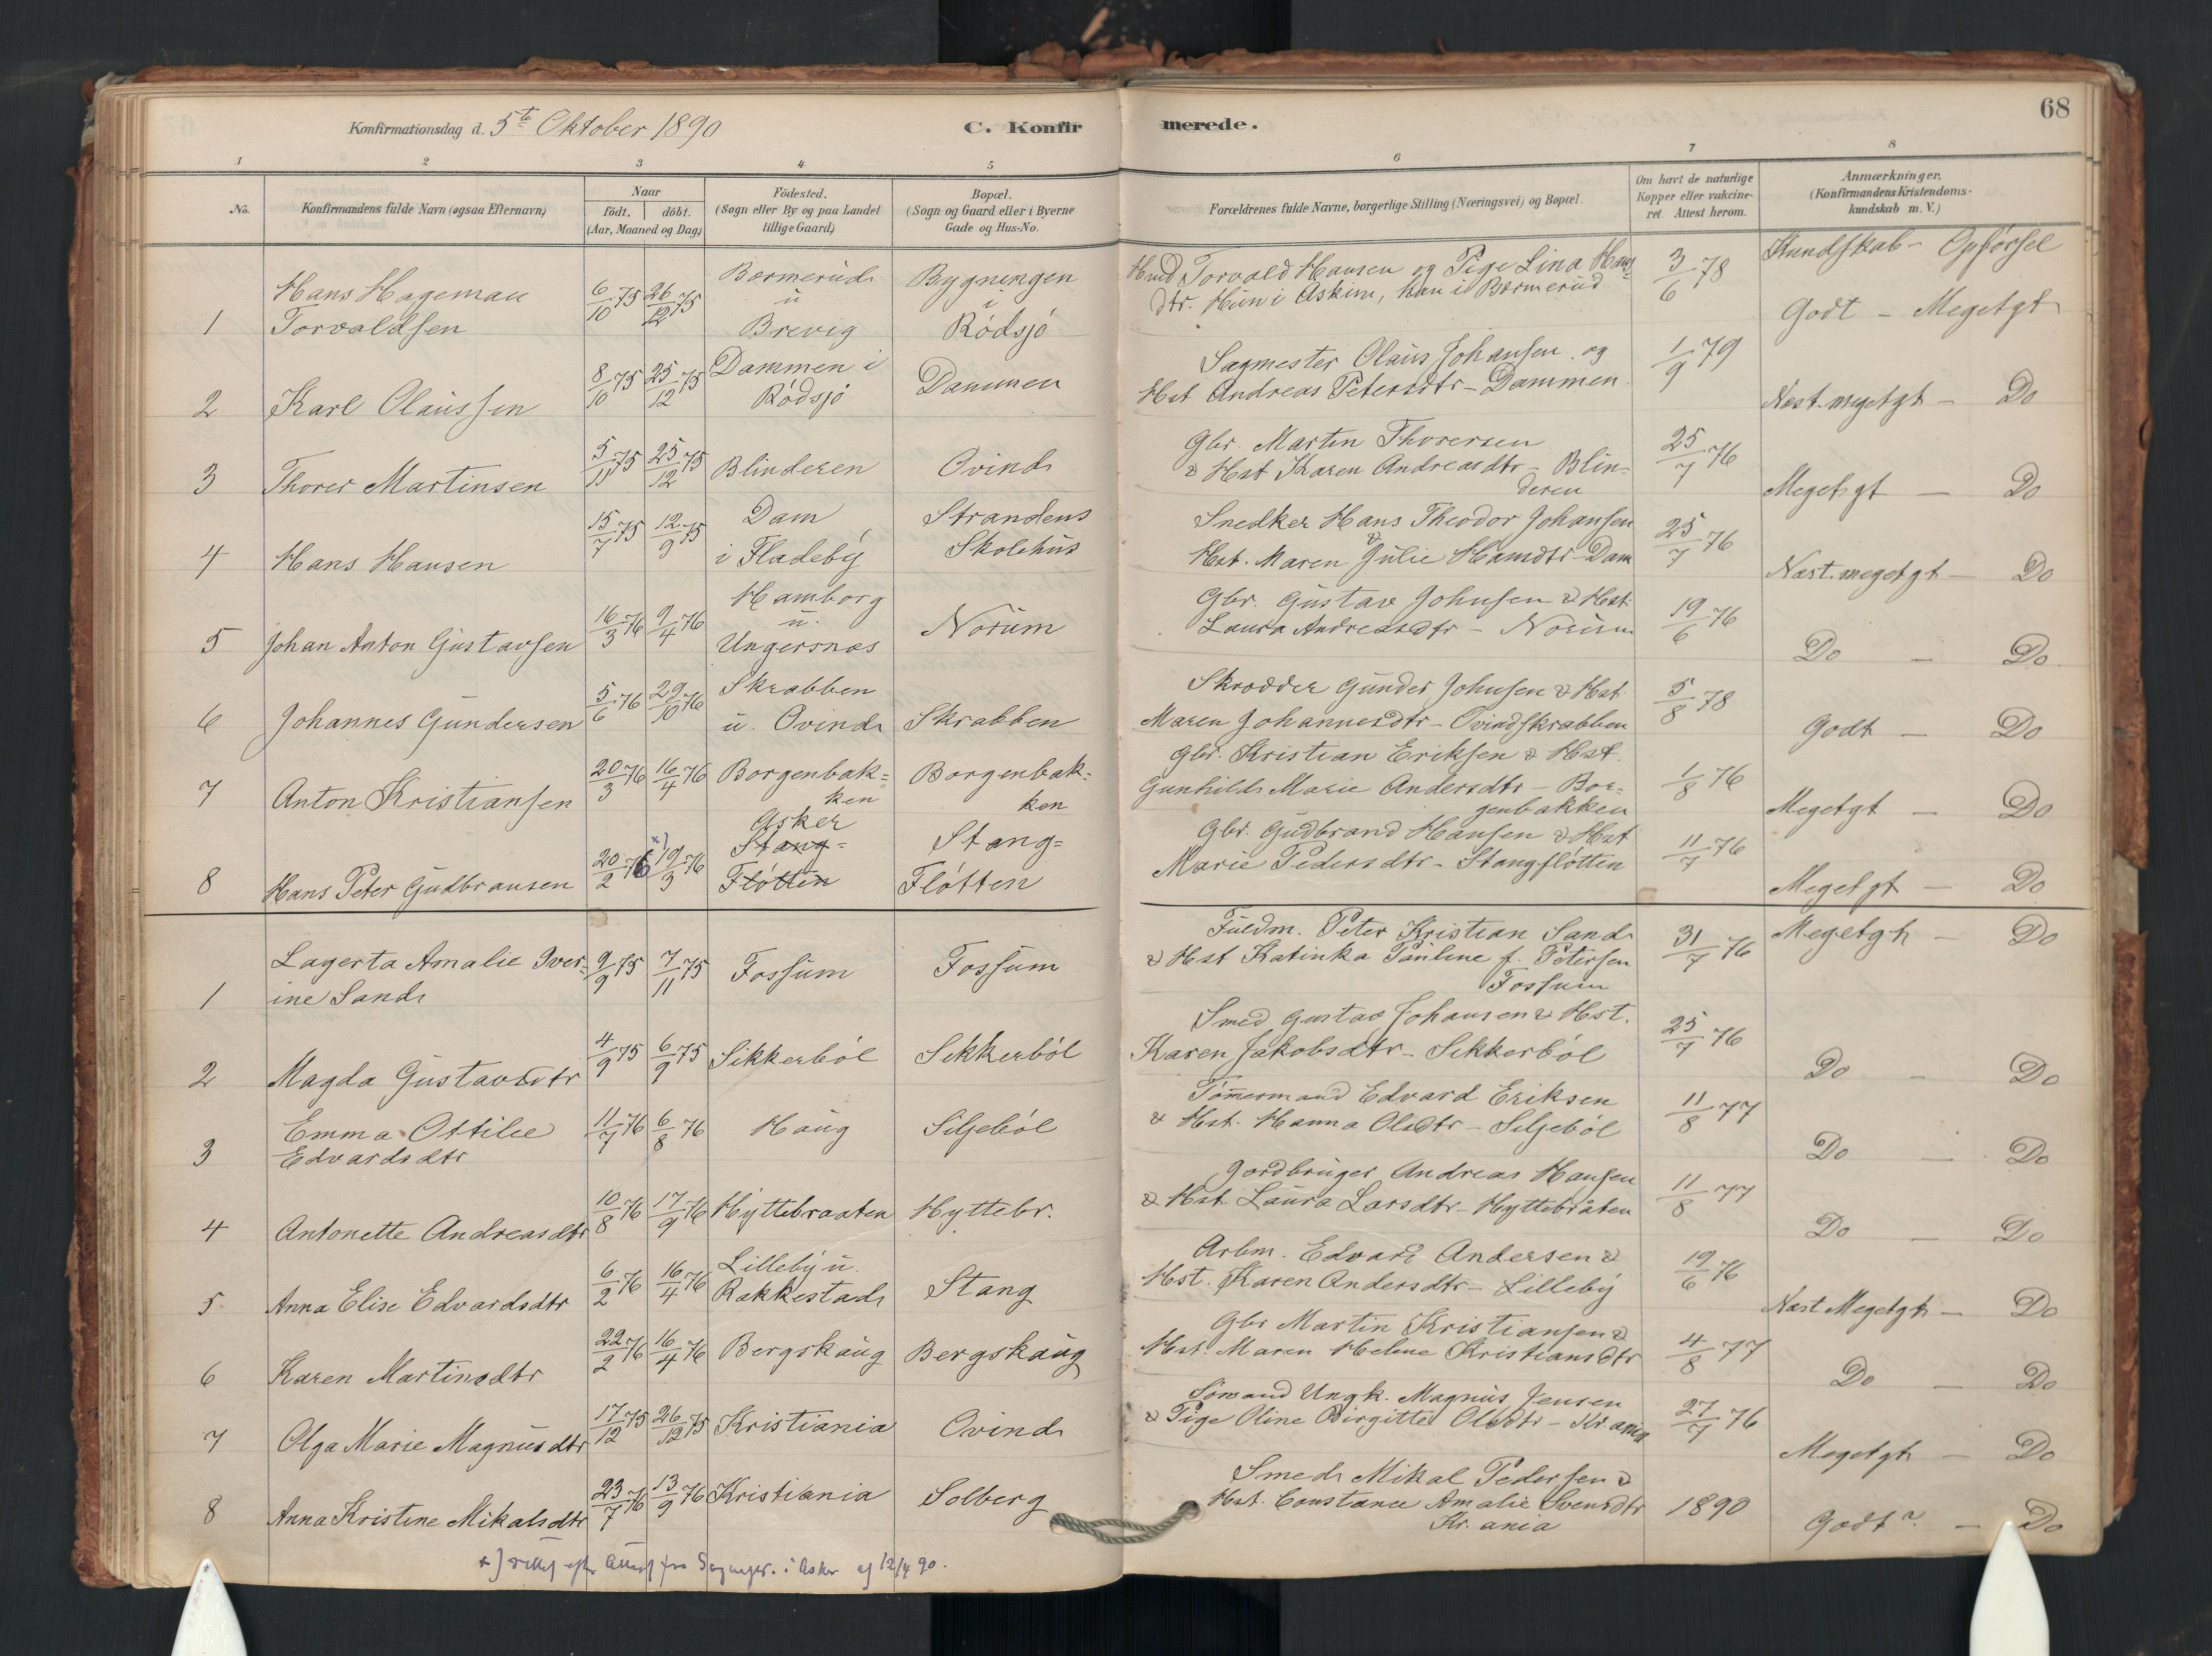 68
Konfirmationsdag d. 5te Oktober 1890 C. Konfirmerede.
1 2 3 4 5 6 7 8
No. Konfirmandens fulde Navn (ogsaa Efternavn) Naar født. døbt. (Aar, Maaned og Dag) Fødested. (Sogn eller By og paa Landet tillige Gaard) Bopæl. (Sogn og Gaard eller i Byerne Gade og Hus-No.
Forældrenes fulde Navne, borgerlige Stilling (Næringsvei) og Bopæl. Om havt de naturlige Kopper eller vakcineret. Attest herom. Anmærkninger. (Konfirmandens Kristendomskundskab m. V.)
Kundskab - Opförsel
1 Hans Hageman Torvaldsen 6/10 75 26/12 75 Bærmerud u Brevig Bygningen i Rödsjö
Torvald Hansen og Pige Lina Hansdtr. Hun i Askim, han i Bærmerud 3/6 78 Godt - Megetgt
2 Karl Olaussen 8/10 75 25/12 75 Dammen i Rödsjö Dammen
Sagmester Olaus Johansen og
Hst Andreas Petersdtr - Dammen 1/9 79 Næst. megetgt - Do
3 Thorer Martinsen 5/11 75 25/12 75 Blinderen Ovind
Gbr. Martin Thorersen
& Hst Karen Andreasdtr - Blinderen 25/7 76 Megetgt - Do
4 Hans Hansen 15/7 75 12/9 75 Dam i Fladeby Strandens Skolehus
Snedker Hans Theodor Johansen
& Hst. Maren Julie Hansdtr - Dam 25/7 76 Næst. megetgt - Do
5 Johan Anton Gustavsen 16/3 76 9/4 76 Hamborg u. Ungersnæs Norum
Gbr. Gustav Johnsen & Hst.
Laura Andreasdtr - Norum 19/6 76 Do - Do
6 Johannes Gundersen 5/6 76 29/10 76 Skrabben u. Ovind Skrabben
Skrædder Gunder Johnsen & Hst.
Maren Johannesdtr - Ovindskrabben 5/8 78 Godt - Do
7 Anton Kristiansen 20/3 76 16/4 76 Borgenbakken Borgenbakken
Gbr. Kristian Eriksen & Hst.
Gunhild Marie Andersdtr - Borgenbakken 1/8 76 Megetgt - Do
8 Hans Peter Gudbransen 20/2 76 x) 19/3 76 Asker Stang-Fløtten Stang-Fløtten
Gbr. Gudbrand Hansen & Hst
Marie Pedersdtr - Stangfløtten 11/7 76 Megetgt - Do
1 Lagerta Amalie Iverine Sand 9/9 75 7/11 75 Fossum Fossum
Fuldm. Peter Kristian Sand
& Hst Katinka Pauline f. Petersen
Fossum 31/7 76 Megetgt - Do
2 Magda Gustavsdtr 4/9 75 6/9 75 Sikkerböl Sikkerböl
Smed Gustav Johansen & Hst.
Karen Jakobsdtr - Sikkerböl 25/7 76 Do - Do
3 Emma Ottilie Edvardsdtr 11/7 76 6/8 76 Haug Siljeböl
Tömermand Edvard Eriksen
& Hst. Hanna Olsdtr - Siljeböl 11/8 77 Do - Do
4 Antonette Andreasdtr 10/8 76 17/9 76 Hyttebraaten Hyttebr.
Jordbruger Andreas Hansen
& Hst Laura Larsdtr - Hyttebråten 11/8 77 Do - Do
5. Anna Elise Edvardsdtr 6/2 76 16/4 76 Lilleby u. Rakkestad Stang
Arbm. Edvard Andersen &
Hst. Karen Andersdtr - Lilleby 19/6 76 Næst Megetgt - Do
6 Karen Martinsdtr 22/2 76 16/4 76 Bergskaug Bergskaug
Gbr Martin Kristiansen &
Hst. Maren Helene Kristiansdtr 4/8 77 Do - Do
7 Olga Marie Magnusdtr 17/12 75 26/12 75 Kristiania Ovind
Sömand Ungk. Magnus Jensen
& Pige Oline Birgitte Olsdtr - Kr.ania 27/7 76 Megetgt - Do
8 Anna Kristine Mikalsdtr 23/7 76 13/9 76 Kristiania Solberg
Smed Mikal Pedersen &
Hst. Constance Amalie Svensdtr
Kr.ania 1890 Godt? - Do
x) rettet efter Attest fra Sognepr. i Asker af 12/4 90.